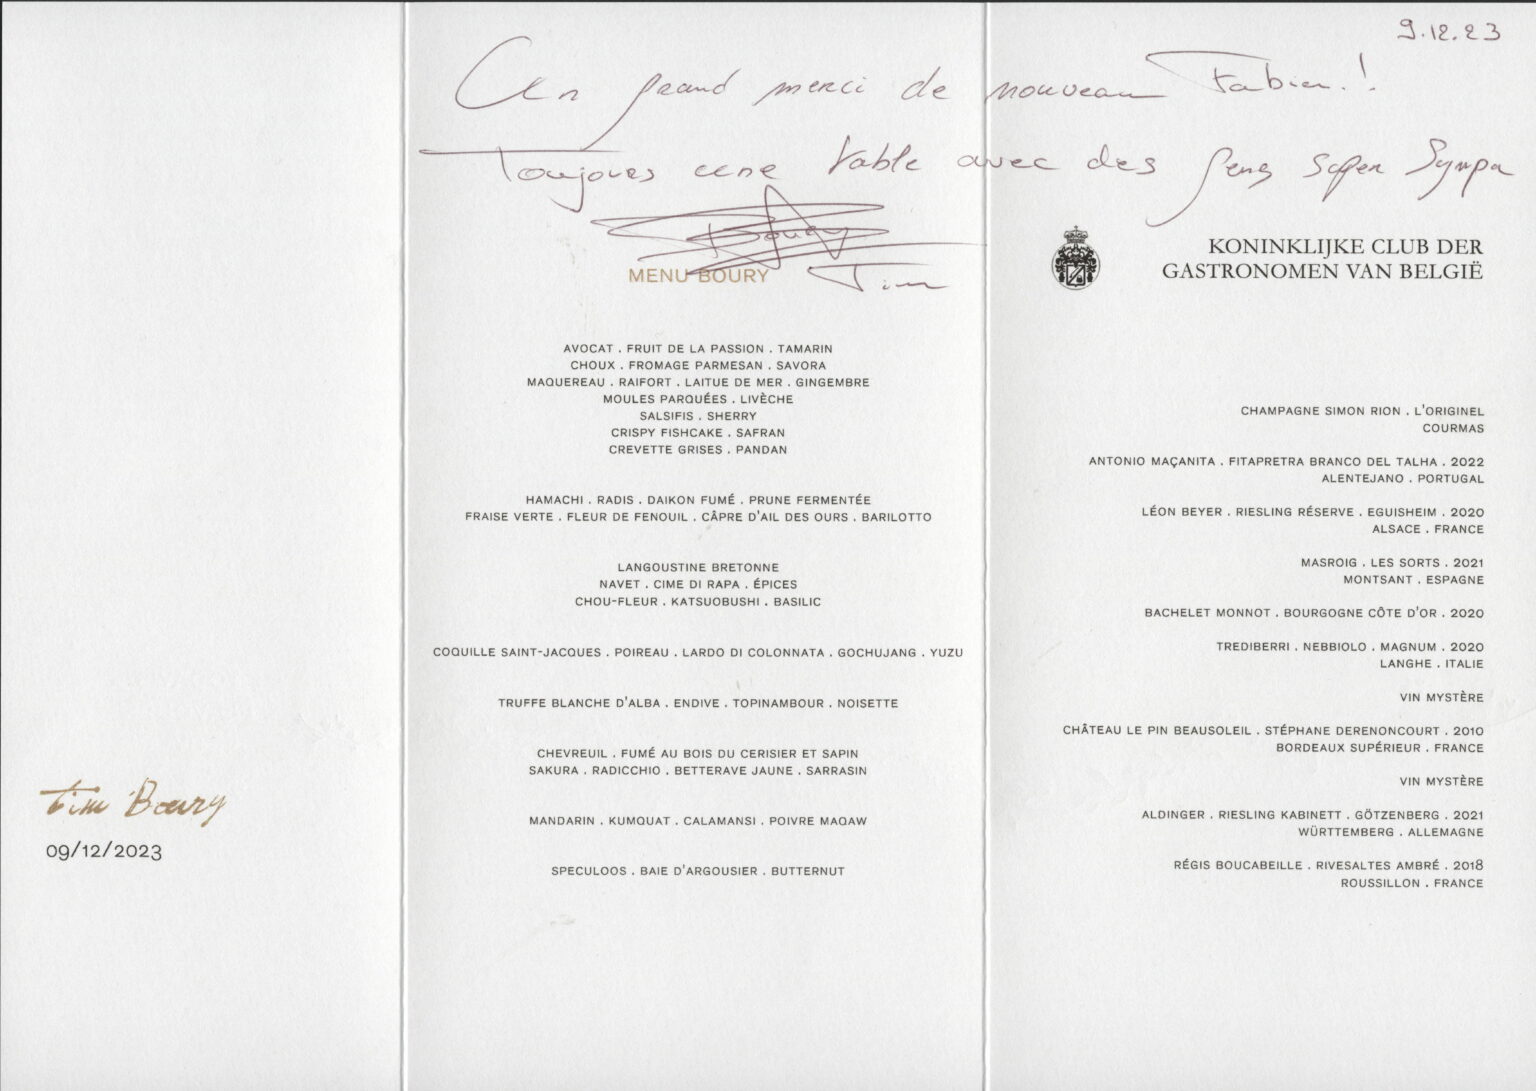 9.12.23
Un grand merci de nouveau Fabien!!
Toujours une table avec des gens super sympa
Boury
Tim
MENU BOURY
AVOCAT . FRUIT DE LA PASSION . TAMARIN
CHOUX . FROMAGE PARMESAN . SAVORA
MAQUEREAU . RAIFORT . LAITUE DE MER . GINGEMBRE
MOULES PARQUÉES . LIVÈCHE
SALSIFIS . SHERRY
CRISPY FISHCAKE . SAFRAN
CREVETTE GRISES . PANDAN
HAMACHI . RADIS . DAIKON FUMÉ . PRUNE FERMENTÉE
FRAISE VERTE . FLEUR DE FENOUIL . CÂPRE D'AIL DES OURS . BARILOTTO
LANGOUSTINE BRETONNE
NAVET . CIME DI RAPA . ÉPICES
CHOU-FLEUR . KATSUOBUSHI . BASILIC
COQUILLE SAINT-JACQUES . POIREAU . LARDO DI COLONNATA . GOCHUJANG . YUZU
TRUFFE BLANCHE D'ALBA . ENDIVE . TOPINAMBOUR . NOISETTE
CHEVREUIL . FUMÉ AU BOIS DU CERISIER ET SAPIN
SAKURA . RADICCHIO . BETTERAVE JAUNE . SARRASIN
MANDARIN . KUMQUAT . CALAMANSI . POIVRE MAQAW
SPECULOOS . BAIE D'ARGOUSIER . BUTTERNUT
KONINKLIJKE CLUB DER
GASTRONOMEN VAN BELGIË
CHAMPAGNE SIMON RION . L'ORIGINEL
COURMAS
ANTONIO MAÇANITA . FITAPRETRA BRANCO DEL TALHA . 2022
ALENTEJANO . PORTUGAL
LÉON BEYER . RIESLING RÉSERVE . EGUISHEIM . 2020
ALSACE . FRANCE
MASROIG . LES SORTS . 2021
MONTSANT . ESPAGNE
BACHELET MONNOT . BOURGOGNE CÔTE D'OR . 2020
TREDIBERRI . NEBBIOLO . MAGNUM . 2020
LANGHE . ITALIE
VIN MYSTÈRE
CHÂTEAU LE PIN BEAUSOLEIL . STÉPHANE DERENONCOURT . 2010
BORDEAUX SUPÉRIEUR . FRANCE
VIN MYSTÈRE
ALDINGER . RIESLING KABINETT . GÖTZENBERG . 2021
WÜRTTEMBERG . ALLEMAGNE
RÉGIS BOUCABEILLE . RIVESALTES AMBRÉ . 2018
ROUSSILLON . FRANCE
Tim Boury
09/12/2023